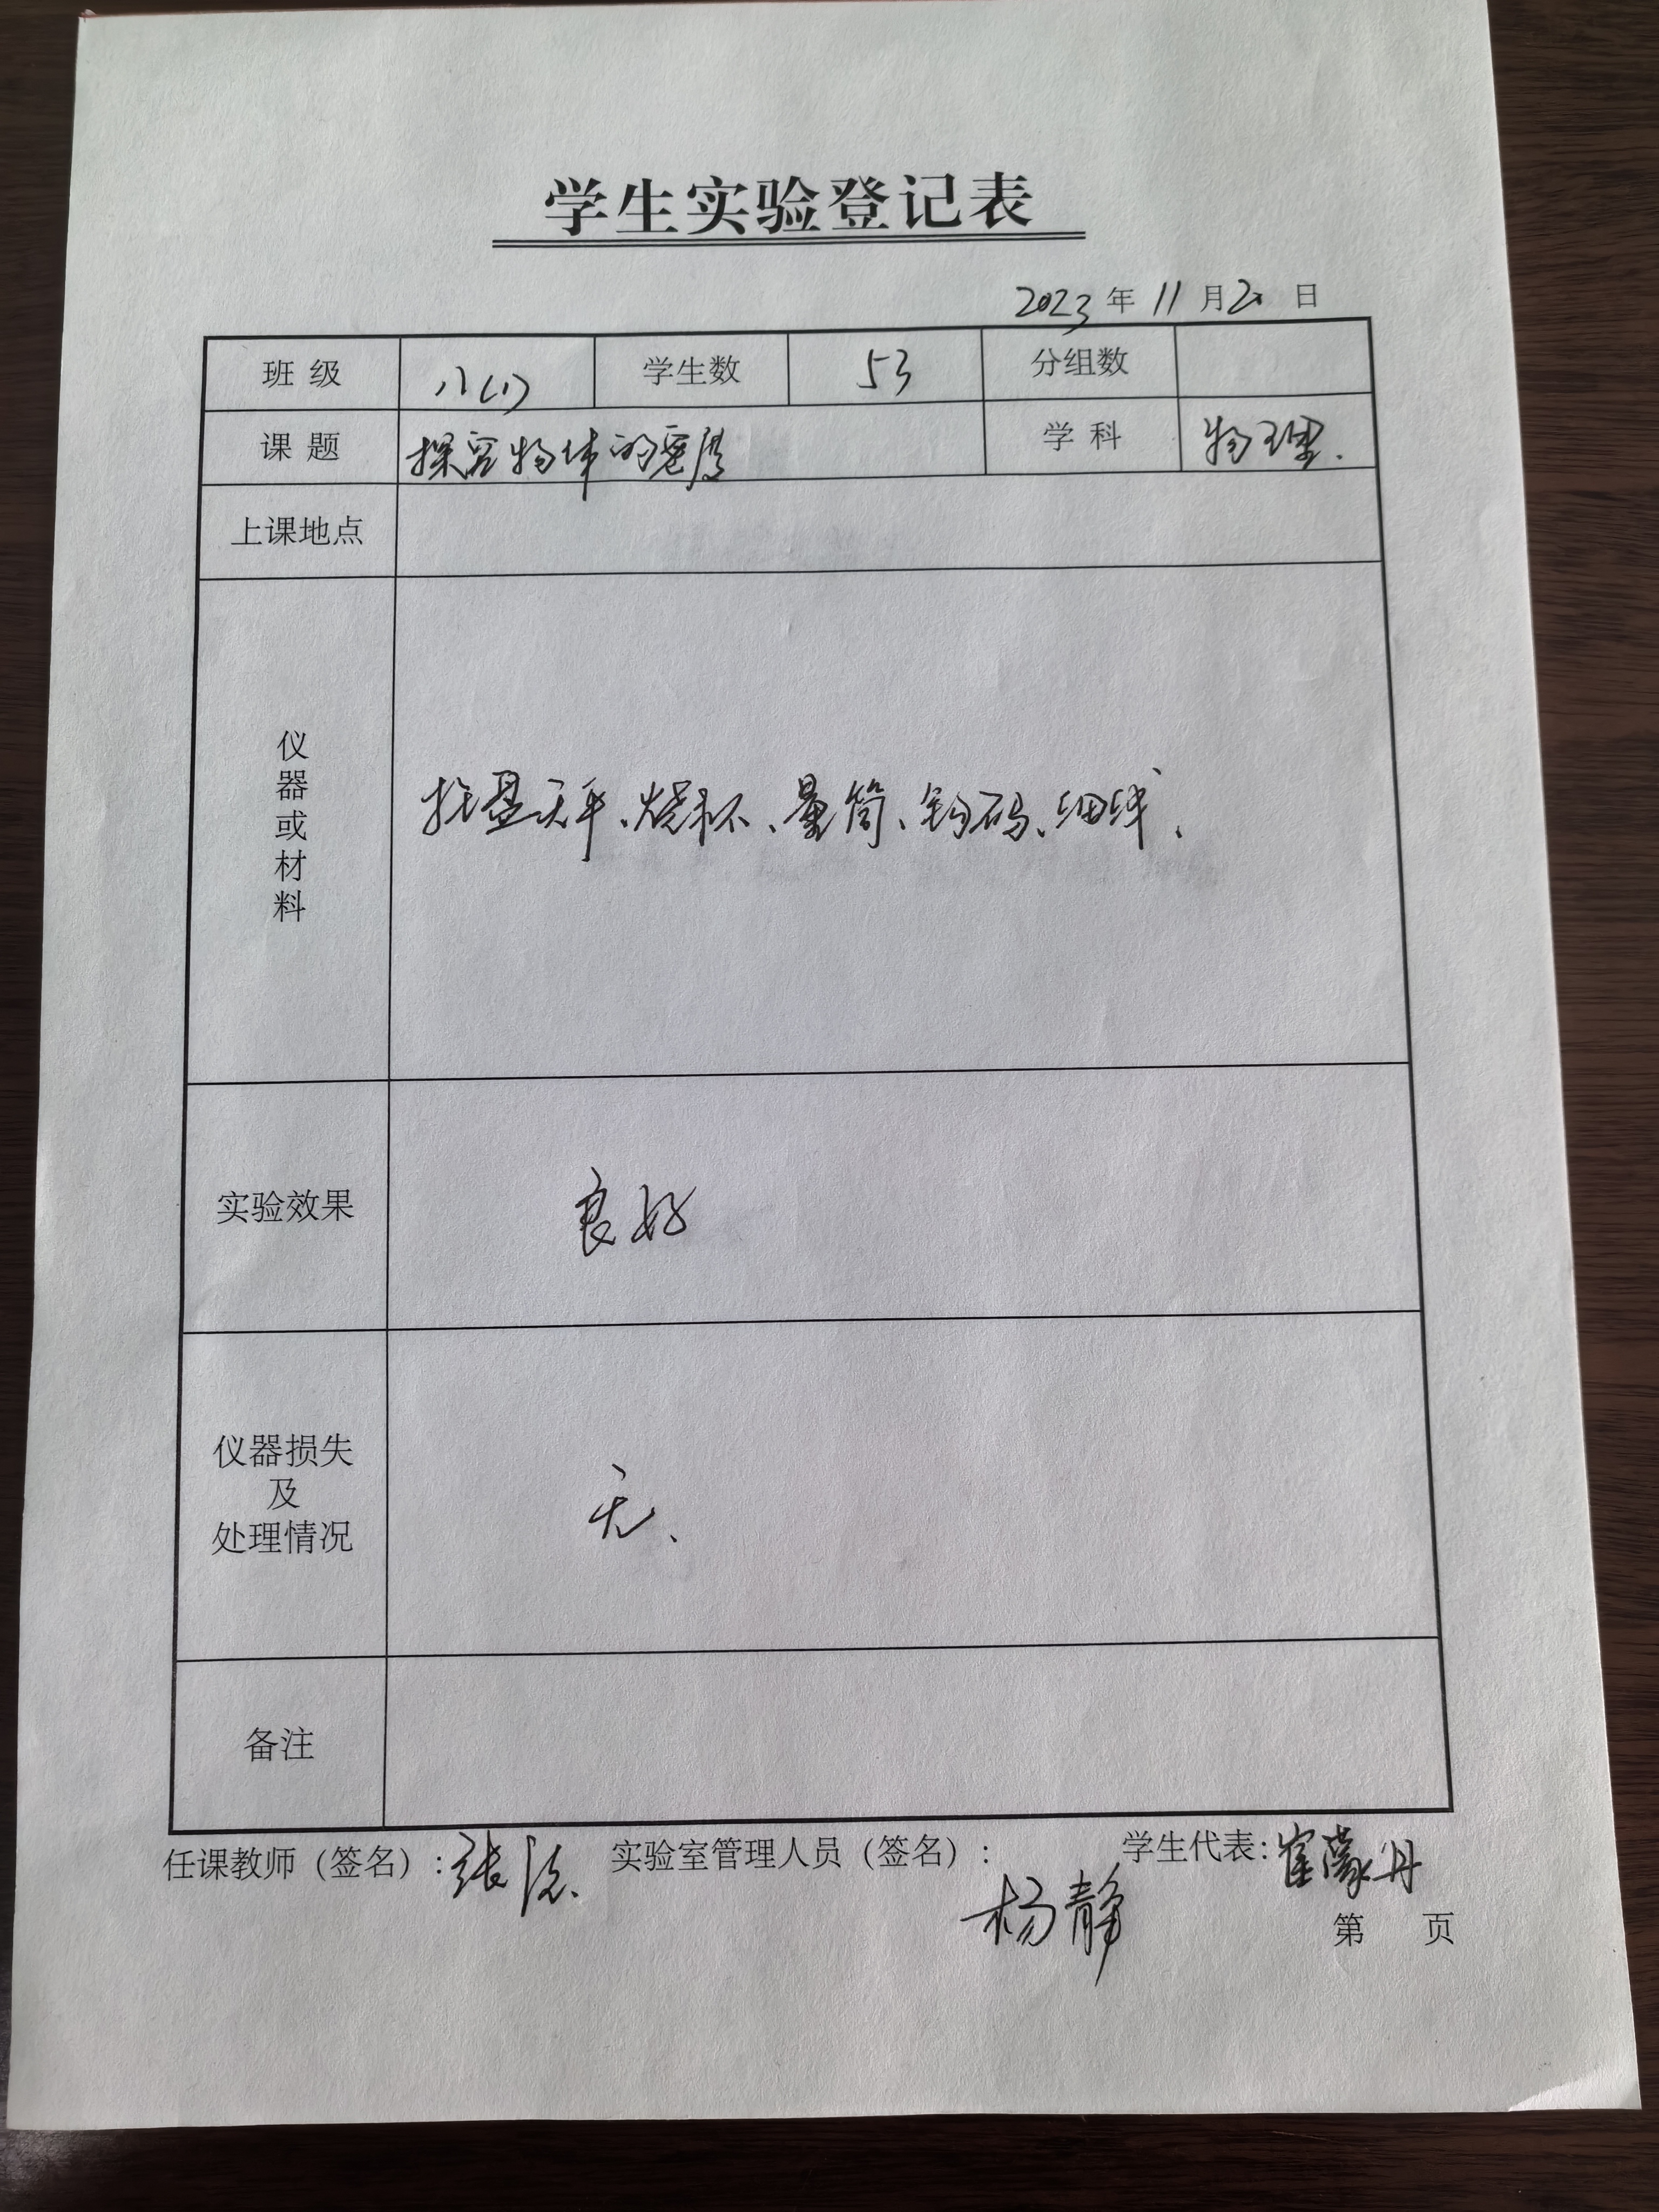 学生实验登记表
2023 年 11 月 20 日
班 级 八(1) 学生数 53 分组数
课 题 探究物体的密度 学 科 物理.
上课地点
仪器或材料 托盘天平、烧杯、量筒、钩码、细线、
实验效果 良好
仪器损失
及
处理情况 无、
备注
任课教师（签名）: 张 实验室管理人员（签名）: 杨静 学生代表: 崔蒙丹
第 页